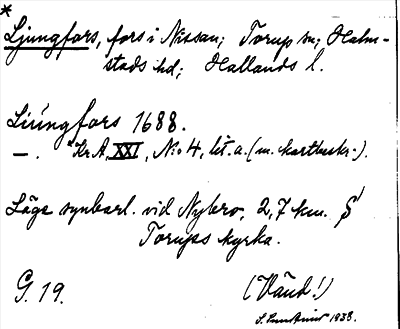 *
Ljungfors, fors i Nissan; Torup sn; Halm-
stads hd; Hallands l.
Liüngfors 1688.
—. Kr.A, XXI, N:o 4, lit. a. (m. kartbeskr.).
Läge synbarl. vid Nybro, 2,7 km. S
Torups kyrka.
G. 19.
(Vänd!)
1938.